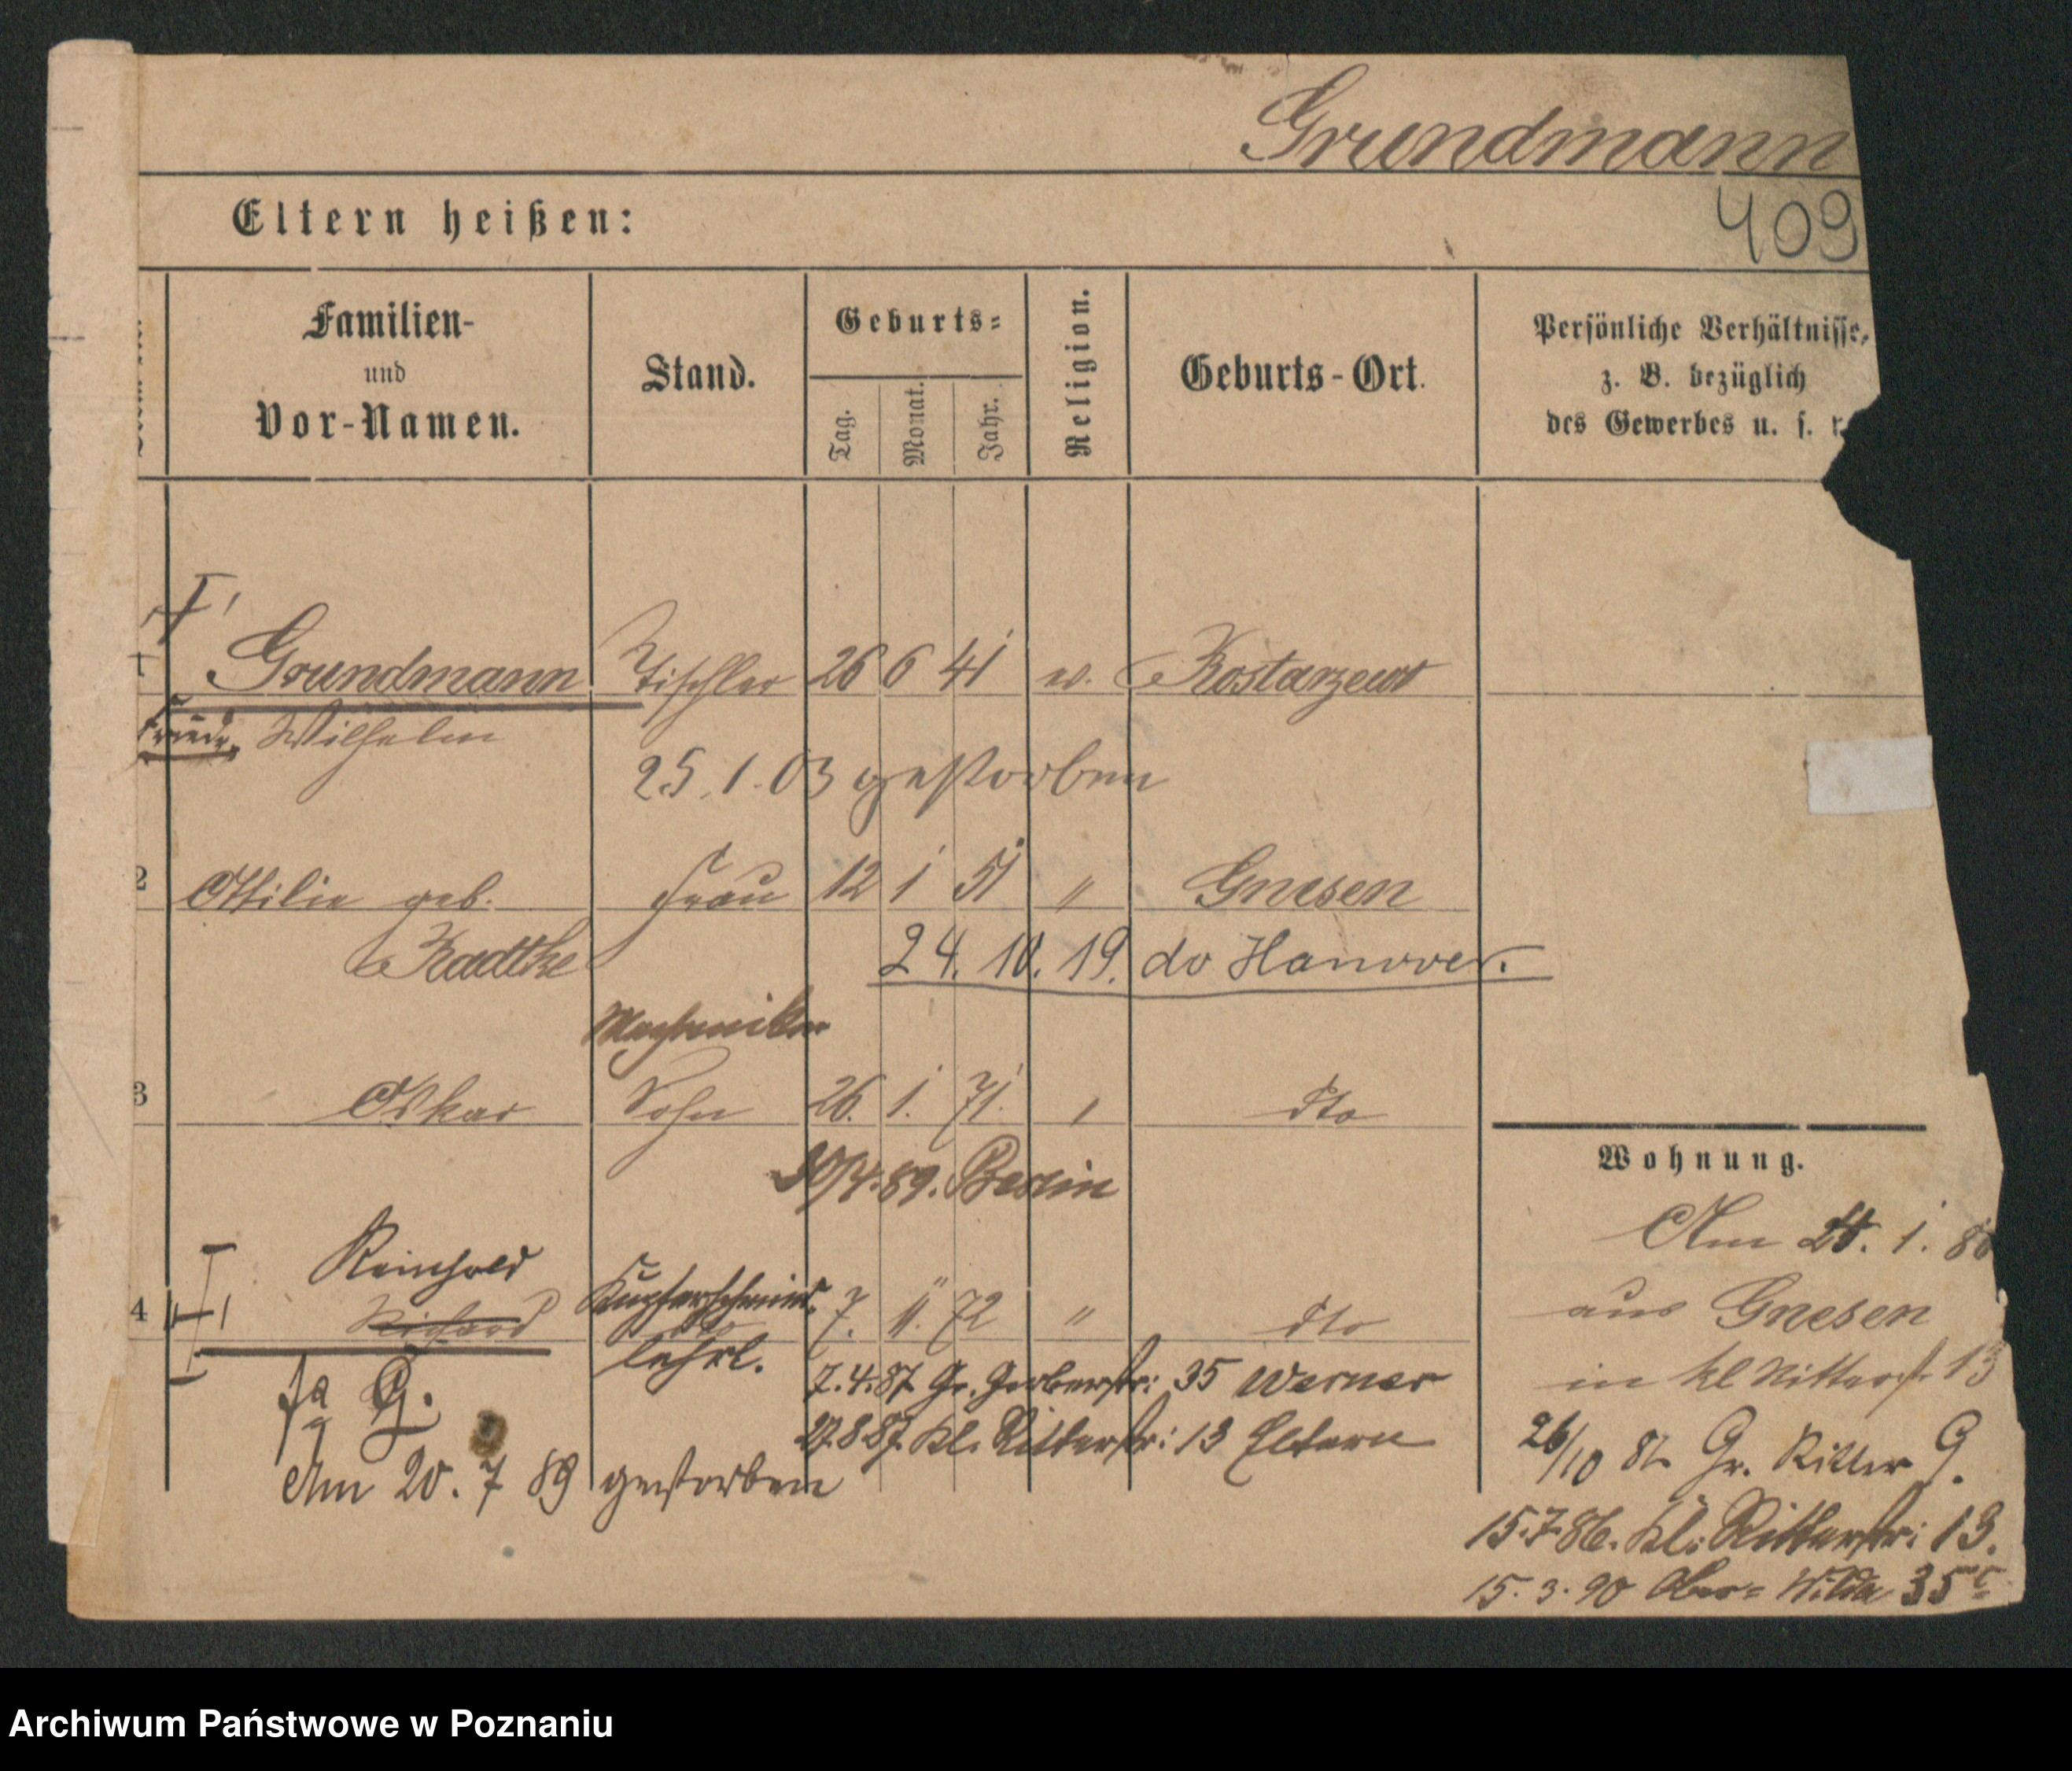 Grundmann
409
Eltern heißen:
Familien- und Vor-Namen.
Stand.
Geburts-
Tag.
Monat.
Jahr.
Religion.
Geburts-Ort.
Persönliche Verhältnisse,
z. B. bezüglich
des Gewerbes u. s.
1 Grundmann Tischler 26 6 41 ev. Kostarzewo
Friedr. Wilhelm
25.1.03 gestorben
2 Ottilie geb. Frau 12 1 51 " Gnesen
Radttke
24.10.19. do Hanover.
Mechaniker
3 Oskar Sohn 26. 1. 71. " dto
30/4.89. Berlin
Reinhold
4 Richard Kupferschmied 7. 11. 72 " dto
lehrl.
7.4.87 Gr. Gerberstr: 35 Werner
27.8.87. Kl. Ritterstr: 13 Eltern
G.
Am 20. 7 89 gestorben
Wohnung.
Am 1. 8
aus Gnesen
in kl Ritterstr 13
26/10 Gr. Ritter 9.
15.7.86. Kl. Ritterstr: 13.
15.3.90 Ober-Wilda 35
Archiwum Państwowe w Poznaniu